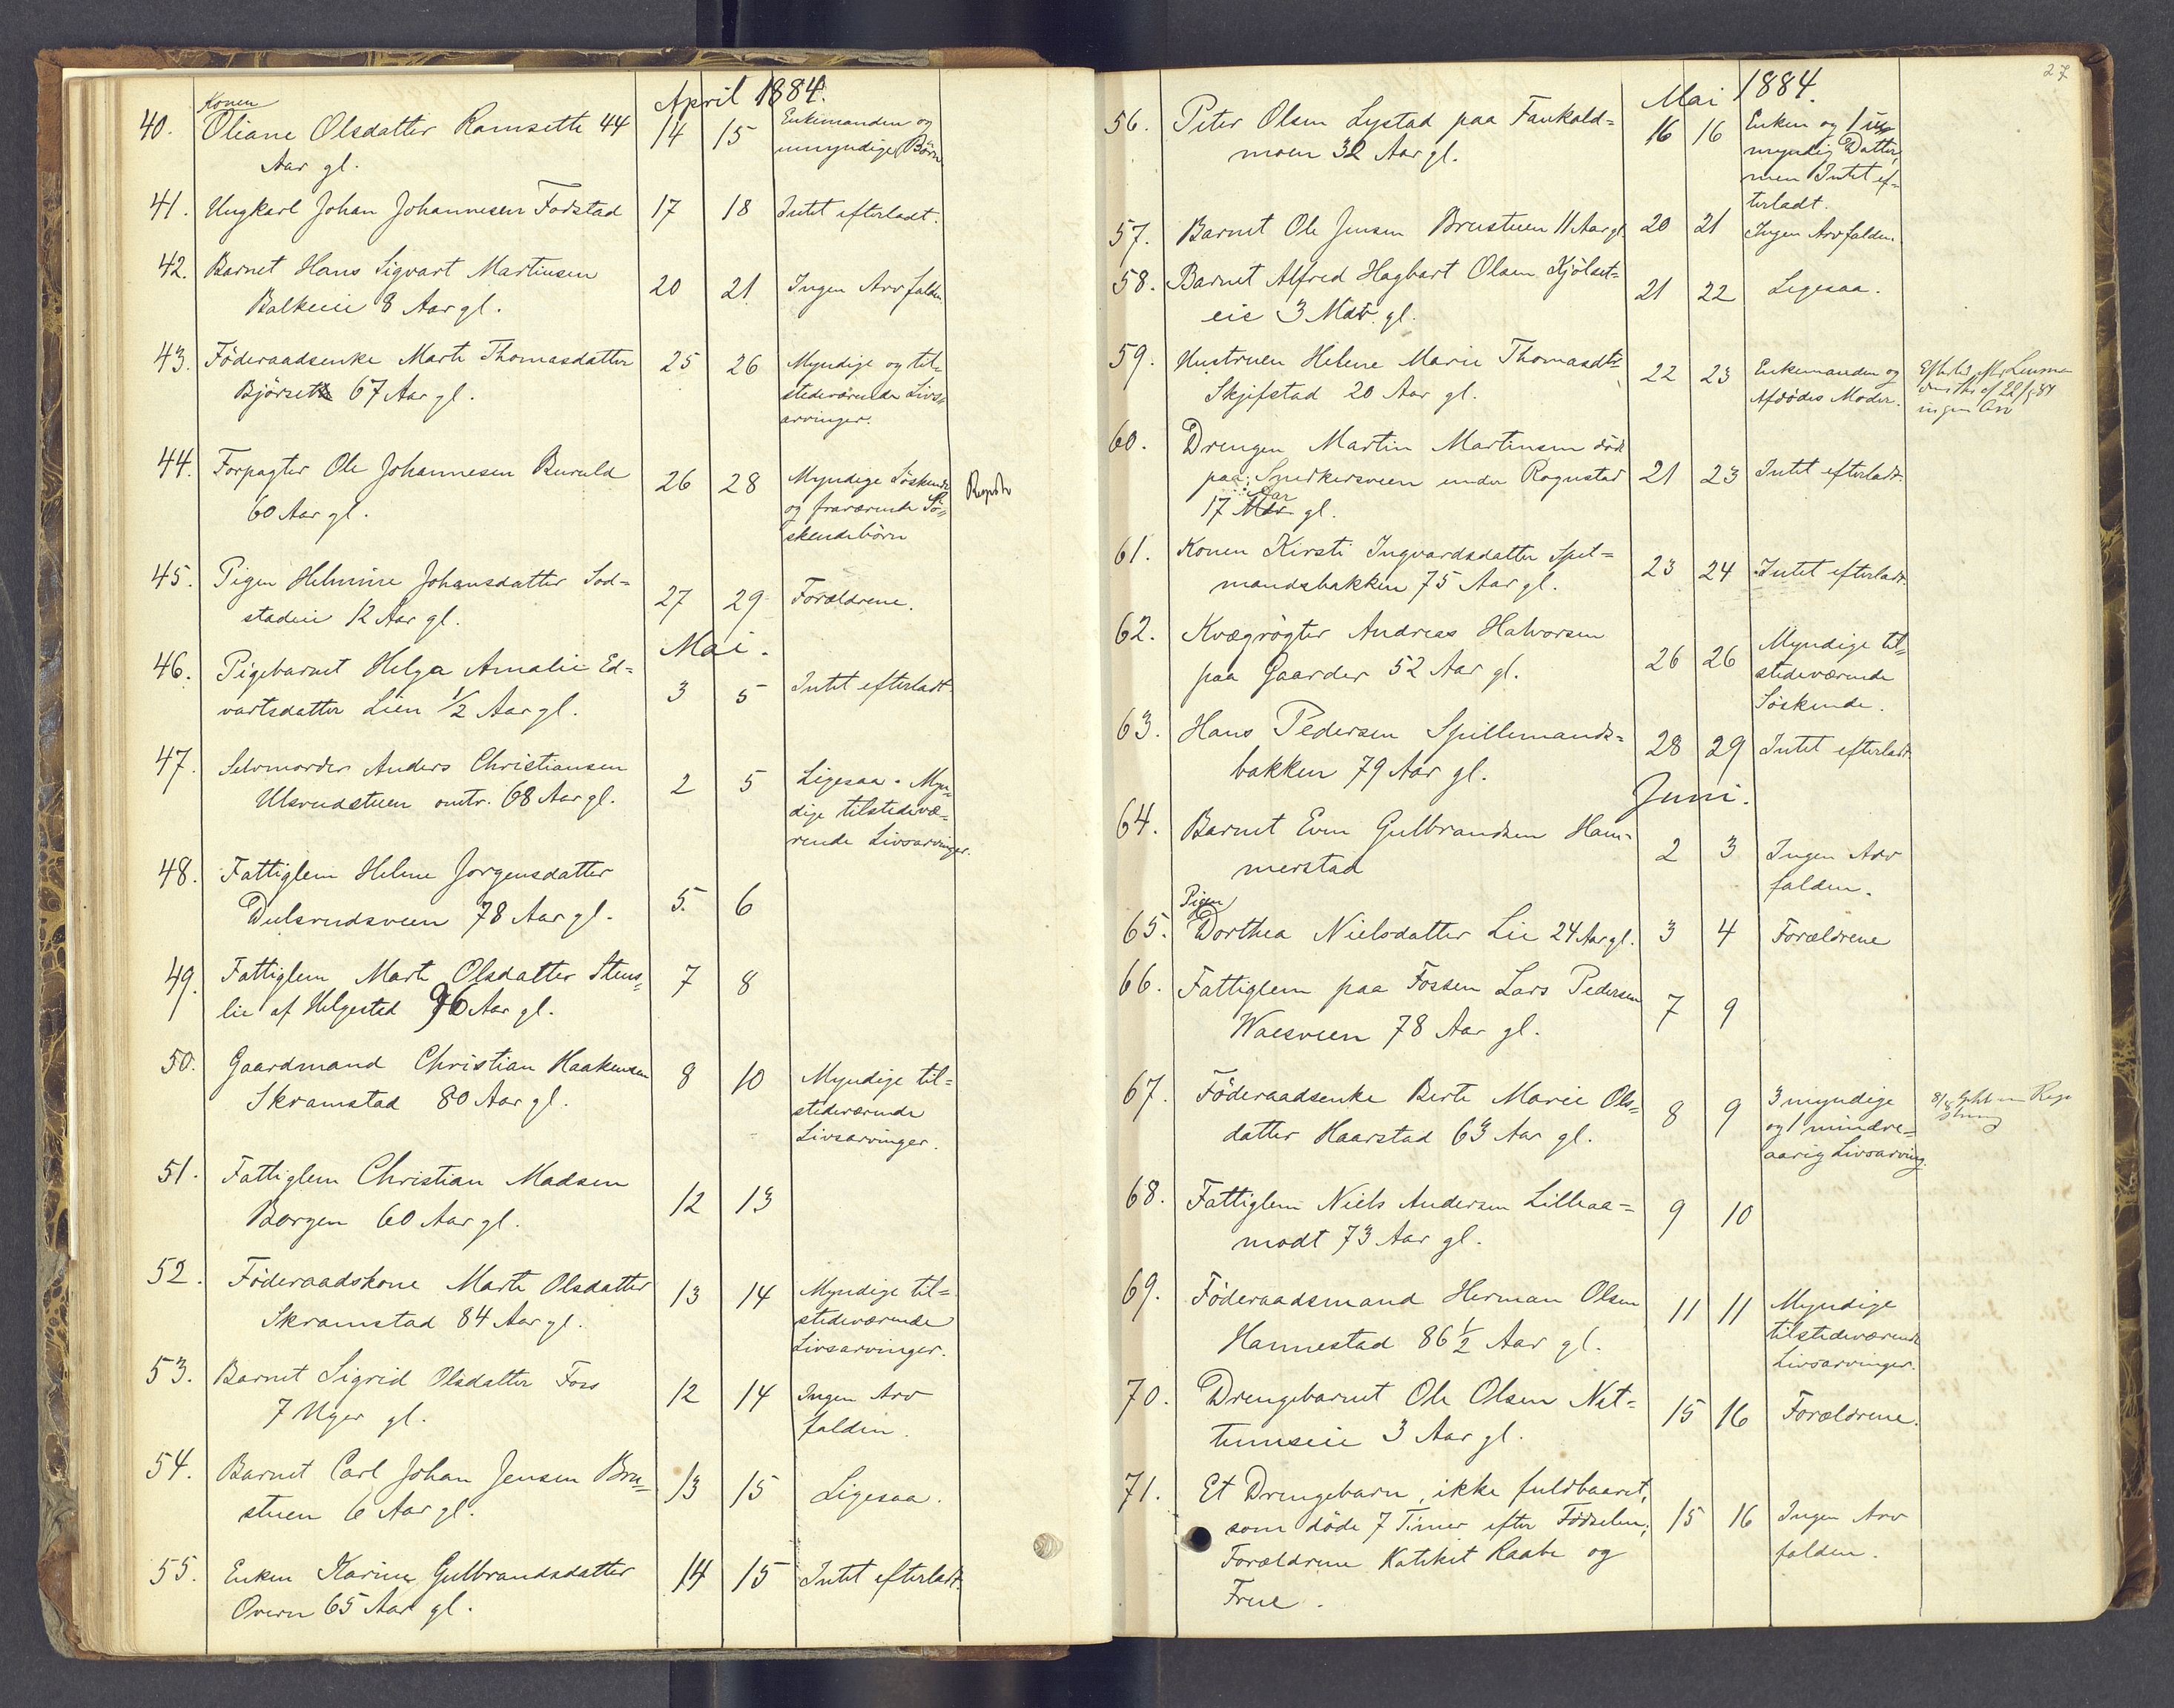 April 1884.
Konen
40. Oliane Olsdatter Ramseth 44 14 15 Enkemanden og
Aar gl. umyndige Børn
41. Ungkarl Johan Johannesen Fodstad 17 18 Intet efterladt.
42. Barnet Hans Sigvart Martinsen
Balkeeie 8 Aar gl. 20 21 Ingen Arv falden.
43. Föderaadsenke Marte Thomasdatter 25 26 Myndige og til=
Bjørset 67 Aar gl. stedeværende Livs=
arvinger.
44. Forpagter Ole Johannesen Buruld 26 28 Myndige Söskende
60 Aar gl. og fraværende Sö=
skendebörn
45. Pigen Helmine Johansdatter Sod=
stadeie 12 Aar gl. 27 29 Forældrene.
Mai.
46. Pigebarnet Helga Amalie Ed=
vartsdatter Lien 1/2 Aar gl. 3 5 Intet efterladt
47. Selvmorder Anders Christiansen 2 5 Ligesaa. Myn=
Ulsrudstuen omtr. 68 Aar gl. dige tilstedevæ=
rende Livsarvinger.
48. Fattiglem Helene Jørgensdatter
Dulsrudsveen 78 Aar gl. 5. 6
49. Fattiglem Marte Olsdatter Stens=
lie af Helgested 96 Aar gl. 7 8
50. Gaardmand Christian Haakensen 8 10 Myndige til=
Skramstad 80 Aar gl. stedeværende
Livsarvinger.
51. Fattiglem Christian Madsen
Borgen 60 Aar gl. 12 13
52. Föderaadskone Marte Olsdatter 13 14 Myndige til=
Skramstad 84 Aar gl. stedeværende
Livsarvinger.
53. Barnet Sigrid Olsdatter Foss 12 14 Ingen Arv
7 Uger gl. falden.
54. Barnet Carl Johan Jensen Bru=
stuen 6 Aar gl. 13 15 Ligesaa.
55. Enken Karine Gulbrandsdatter 14 15 Intet efterladt
Overn 65 Aar gl.
27
Mai 1884.
56. Peter Olsen Lystad paa Fankald= 16 16 Enken og 1 u=
moen 32 Aar gl. myndig Datter,
men Intet ef=
terladt.
57. Barnet Ole Jensen Brustuen 11 Aar gl 20 21 Ingen Arv falden.
58. Barnet Alfred Hagbart Olsen Kjölset=
eie 3 Mdr. gl. 21 22 Ligesaa.
59. Hustruen Helene Marie Thomasdtr. 22 23 Enkemanden og
Skjefstad 20 Aar gl. Afdödes Moder.
ingen Arv
60. Drengen Martin Martinsen död
paa Snedkersveen under Rognstad 21 23 Intet efterladt.
Aar
17 Mdr gl.
61. Konen Kirsti Ingvardsdatter Spel=
mandsbakken 75 Aar gl. 23 24 Intet efterladt.
62. Kvægrögter Andreas Halvorsen 26 26 Myndige til=
paa Gaarder 52 Aar gl. stedeværende
Söskende.
63. Hans Pedersen Spillemands= 28 29 Intet efterladt
bakken 79 Aar gl.
Juni.
64. Barnet Even Gulbrandsen Ham=
merstad 2 3 Ingen Arv
falden.
Pigen
65. Dorthea Nielsdatter Lie 24 Aar gl. 3 4 Forældrene
66. Fattiglem paa Fossen Lars Pedersen 7 9
Waesveen 78 Aar gl.
67. Föderaadsenke Berte Marie Ols=
datter Haarstad 63 Aar gl. 8 9 3 myndige
og 1 mindre=
aarig Livsarving.
68. Fattiglem Niels Andersen Lilleaa=
modt 73 Aar gl. 9 10
69. Föderaadsmand Herman Olsen 11 11 Myndige
Hannestad 86 1/2 Aar gl. tilstedeværende
Livsarvinger.
70. Drengebarnet Ole Olsen Net=
tumseie 3 Aar gl. 15 16 Forældrene.
71. Et Drengebarn, ikke fuldbaaret,
som döde 7 Timer efter Födselen; 15 16 Ingen Arv
Forældrene Katekit Raabe og falden.
Frue.